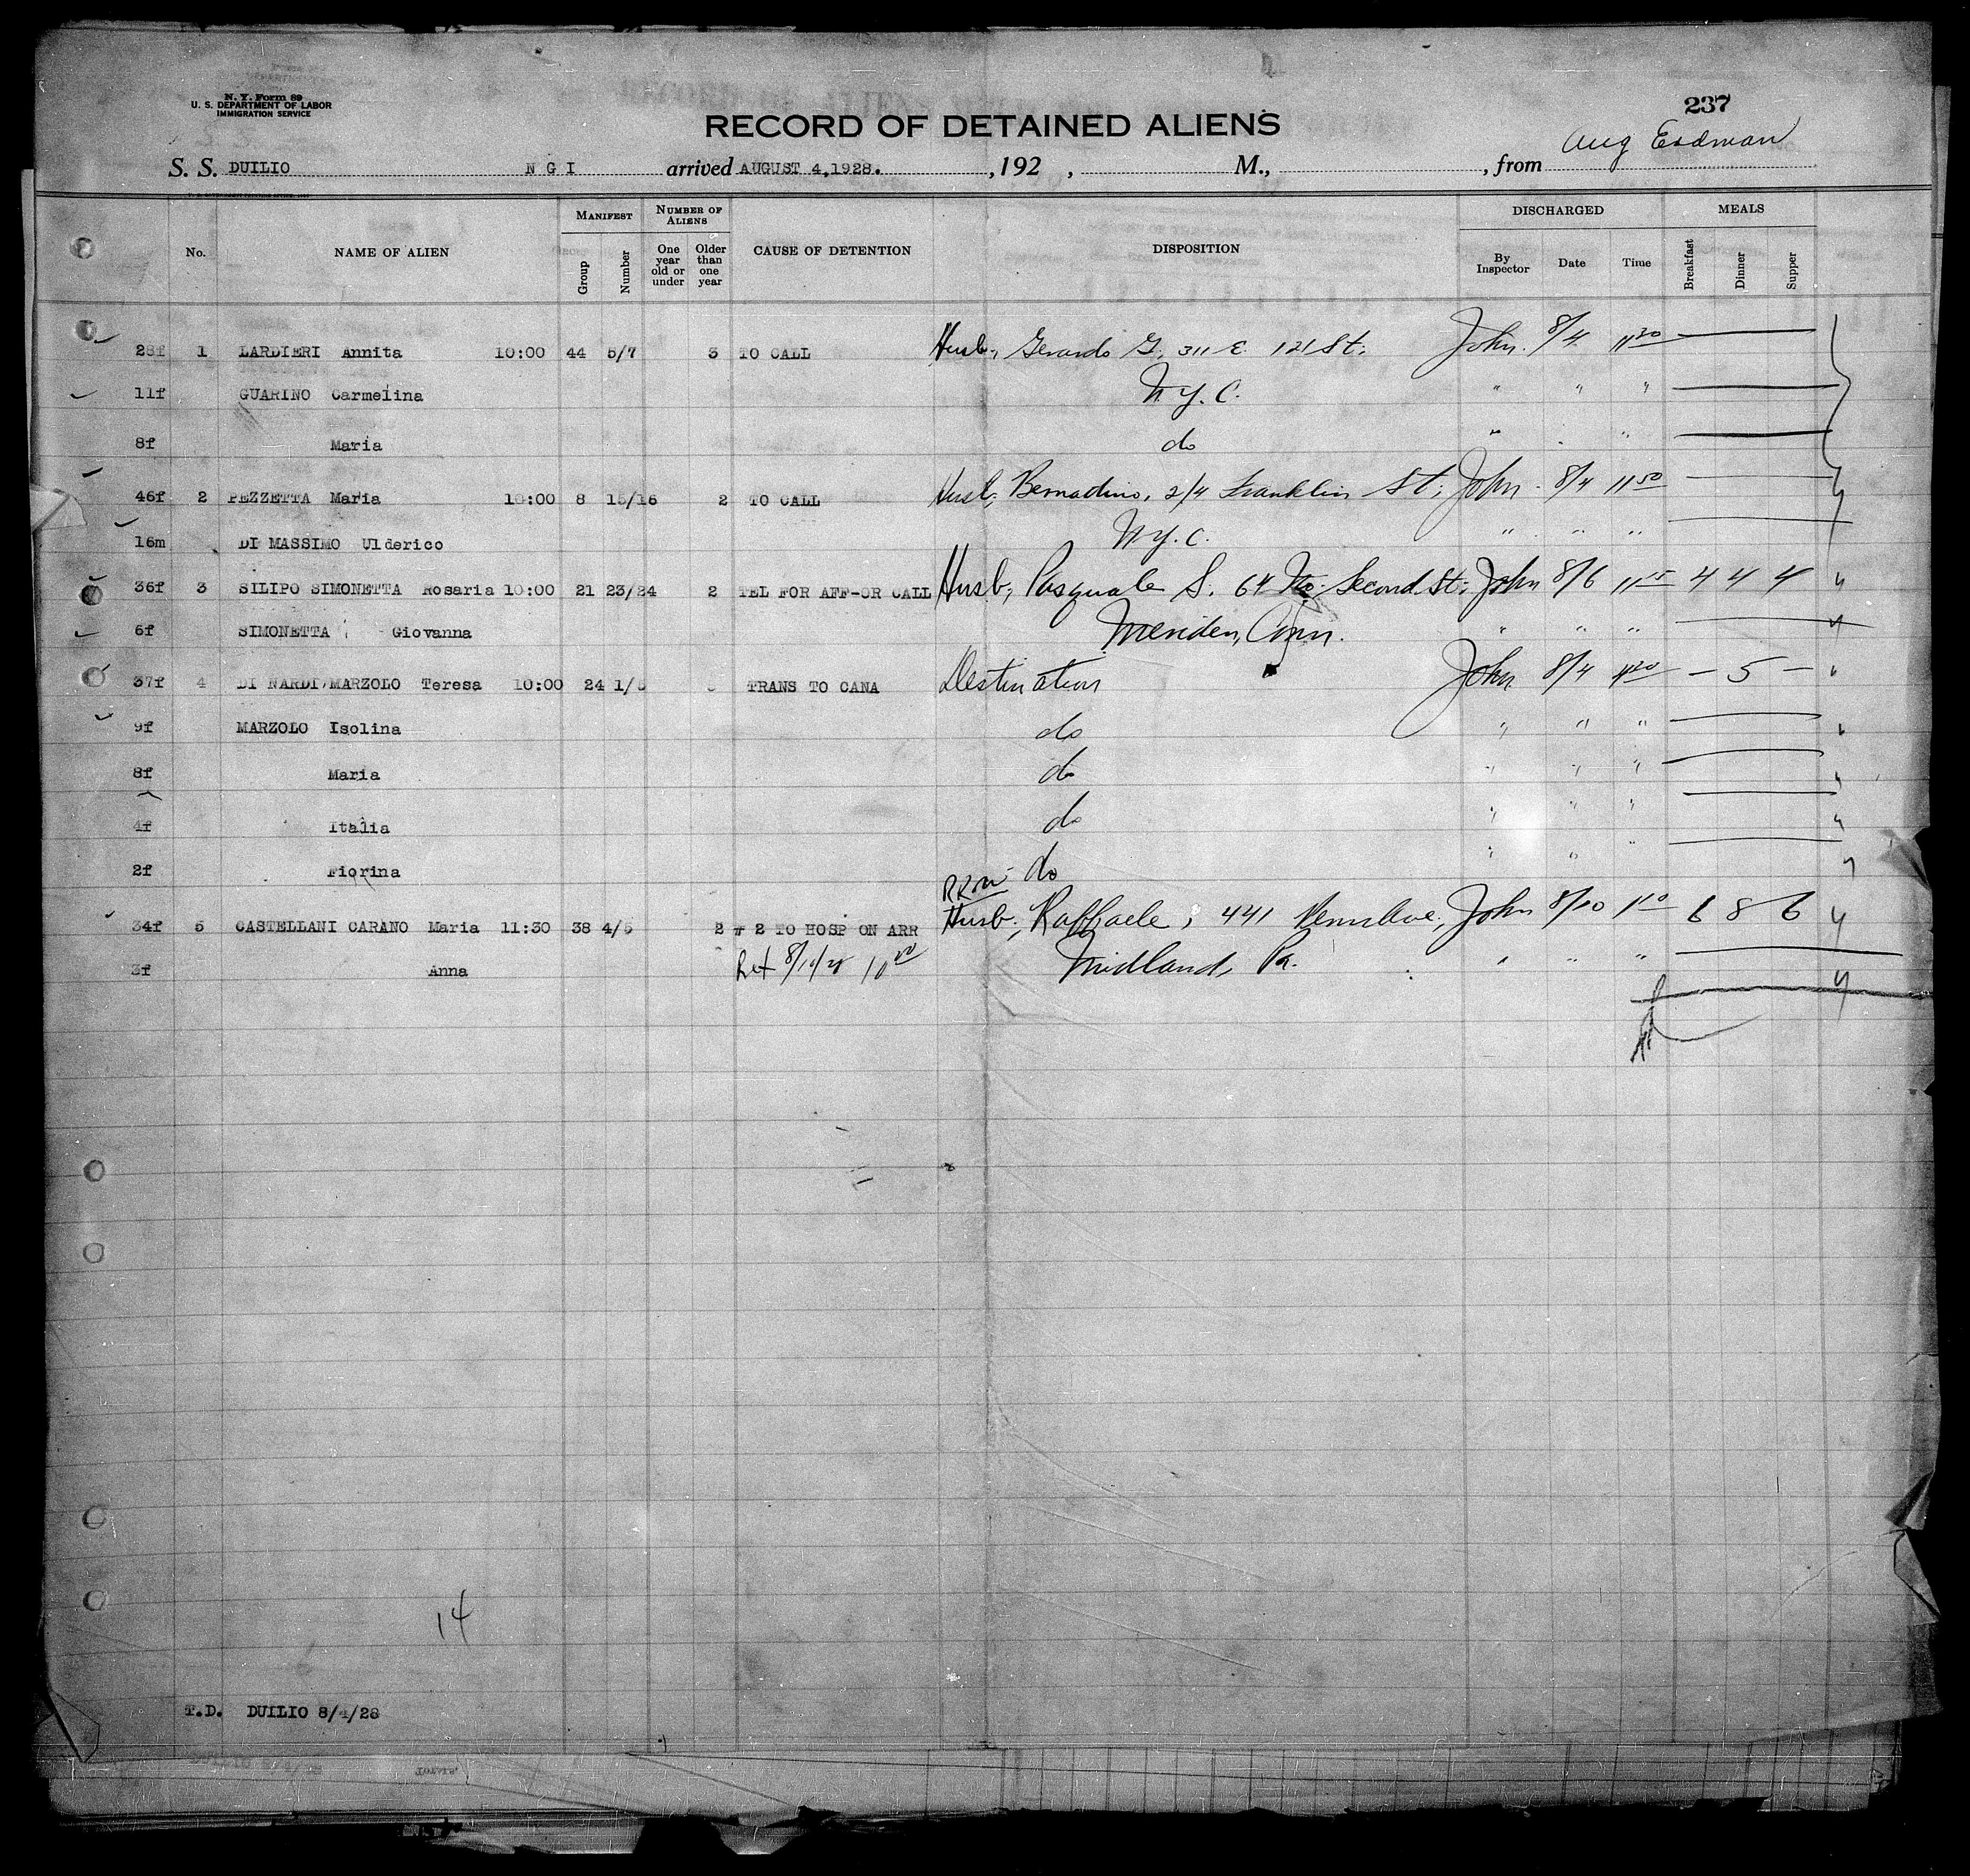 N. Y. Form 89
U. S. DEPARTMENT OF LABOR
IMMIGRATION SERVICE
237
RECORD OF DETAINED ALIENS
S. S. DUILIO N G I arrived AUGUST 4,1928. , 192 , M., , from Aug Erdman
No. NAME OF ALIEN MANIFEST Group Number NUMBER OF ALIENS One year old or under Older than one year CAUSE OF DETENTION DISPOSITION DISCHARGED By Inspector Date Time MEALS Breakfast Dinner Supper
28f 1 LARDIERI Annita 10:00 44 5/7 3 TO CALL Husb; Gerardo G; 311 E. 121 St; John. 8/4 11 30
11f GUARINO Carmelina N.Y.C. " " "
8f Maria do " . "
46f 2 PEZZETTA Maria 10:00 8 15/16 2 TO CALL Husb; Bernadino, 214 Franklin St; John 8/4 11 50
16m DI MASSIMO Ulderico N.Y.C. " " "
36f 3 SILIPO SIMONETTA Rosaria 10:00 21 23/24 2 TEL FOR AFF-OR CALL Husb; Pasquale S. 64 No. Second St; John 8/6 11 15 4 4 4 "
6f SIMONETTA Giovanna Meriden, Conn. " " "
37f 4 DI NARDI MARZOLO Teresa 10:00 24 1/5 TRANS TO CANA Destination John 8/4 - 5 - "
9f MARZOLO Isolina do " " "
8f Maria do " " "
4f Italia do " " "
2f Fiorina do " " "
34f 5 CASTELLANI CARANO Maria 11:30 38 4/5 2 2 TO HOSP ON ARR Husb; Raffaele, 441 Penn Ave; John 8/10 1 10 6 8 6
3f Anna Ret 8/10/28 10 Midland, Pa. " " "
14
T.D. DUILIO 8/4/28